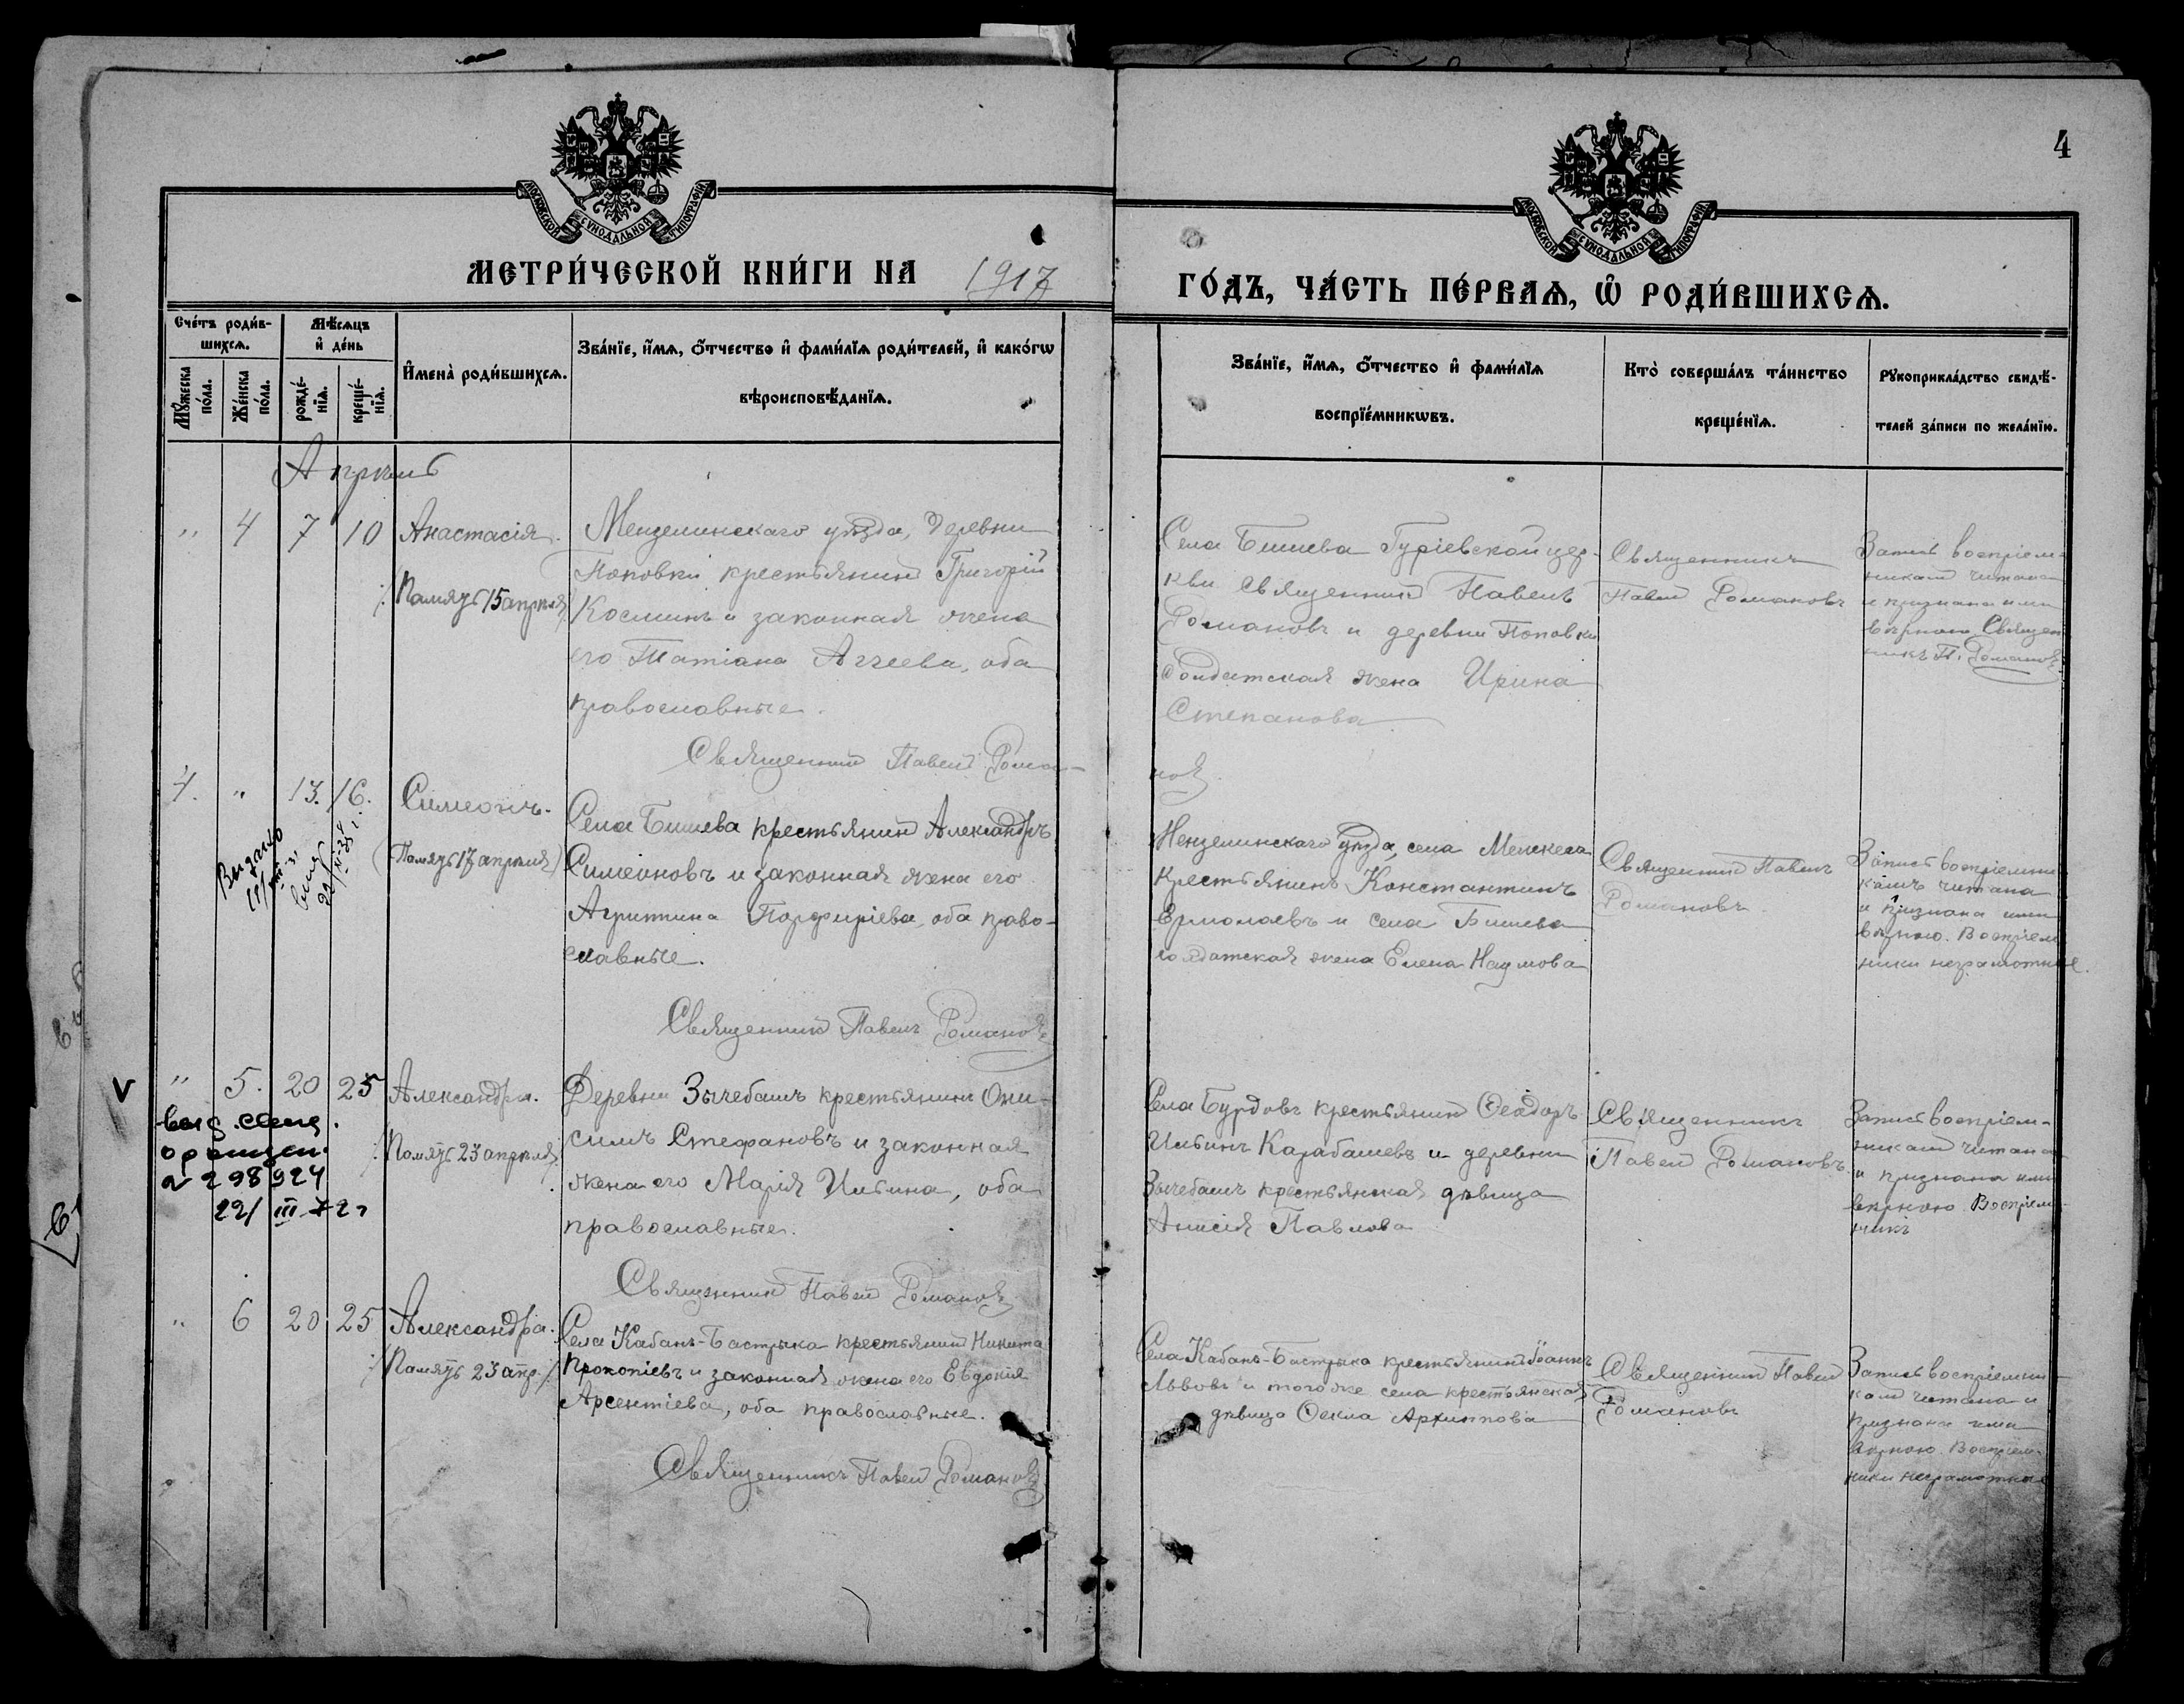 4
МОСКОВСКОЙ СѴНОДАЛЬНОЙ ТИПОГРАФІИ
МОСКОВСКОЙ СѴНОДАЛЬНОЙ ТИПОГРАФІИ
МЕТРИ́ЧЕСКОЙ КНИ́ГИ НА 1917
ГО́ДЪ, ЧА́СТЬ ПЕ́РВАѦ, Ѽ РОДИ́ВШИХСѦ.
Сче́тъ роди́в-
шихсѧ.
Мѣ́сѧцъ
и҆ де́нь
Мꙋ́жеска
по́ла.
Же́нска
по́ла.
рожде́-
нїѧ.
креще́-
нїѧ.
И҆мена̀ роди́вшихсѧ.
Зва́нїе, и҆́мѧ, ѻ҆́тчество и҆ фами́лїѧ роди́телей, и҆ како́гѡ
вѣроисповѣ́данїѧ.
Зва́нїе, и҆́мѧ, ѻ҆́тчество и҆ фами́лїѧ
воспрїе́мникѡвъ.
Кто̀ соверша́лъ та́инство
креще́нїѧ.
Рꙋкоприкла́дство свидѣ́-
телей за́писи по жела́нїю.
Апрѣль
" 4 7 10 Анастасія.
Память 15 апрѣля
Мензелинскаго уѣзда, деревни
Поповки крестьянинъ Григорій
Косминъ и законная жена
его Татіана Аггеева, оба
православные.
Священникъ Павелъ Рома-
новъ.
Села Бишева Гуріевской цер-
кви священникъ Павелъ
Романовъ и деревни Поповки
солдатская жена Ирина
Степанова
Священникъ
Павелъ Романовъ
Запись воспріем-
никамъ читана
и признана ими
вѣрною. Священ
никъ П. Романовъ
4. " 13. 16. Симеонъ.
(Память 17 апрѣля)
Выдано
Села Бишева крестьянинъ Александръ
Симеоновъ и законная жена его
Агриппина Порфиріева, оба право-
славные.
Священникъ Павелъ Романовъ
Мензелинскаго уѣзда, села
крестьянинъ Константинъ
Ермолаевъ и села Бишева
солдатская жена Елена Наумова
Священникъ Павелъ
Романовъ
Запись воспріемни
камъ читана
и признана ими
вѣрною. Воспріем
ники неграмотные.
V " 5. 20 25 Александра.
Память 23 апрѣля
298924
22/III 72 г
Деревни Зычебашъ крестьянинъ Они-
симъ Стефановъ и законная
жена его Марія Ильина, оба
православные.
Священникъ Павелъ Романовъ
Села Бурдовъ крестьянинъ Ѳеодоръ
Ильинъ Карабашевъ и деревни
Зычебашъ крестьянская дѣвица
Анисія Павлова
Священникъ
Павелъ Романовъ.
Запись воспріем-
никамъ читана
и признана ими
вѣрною. Воспріем
никъ
" 6 20 25 Александра.
Память 23 апр.
Села Кабанъ-Бастрыка крестьянинъ Никита
Прокопіевъ и законная жена его Евдокія
Арсентіева, оба православные.
Священникъ Павелъ Романовъ
Села Кабанъ-Бастрыка крестьянинъ Іоаннъ
Львовъ и того же села крестьянская
дѣвица Ѳекла Архиппова
Священникъ Павелъ
Романовъ
Запись воспріемни
камъ читана и
признана ими
вѣрною. Воспріем-
ники неграмотные